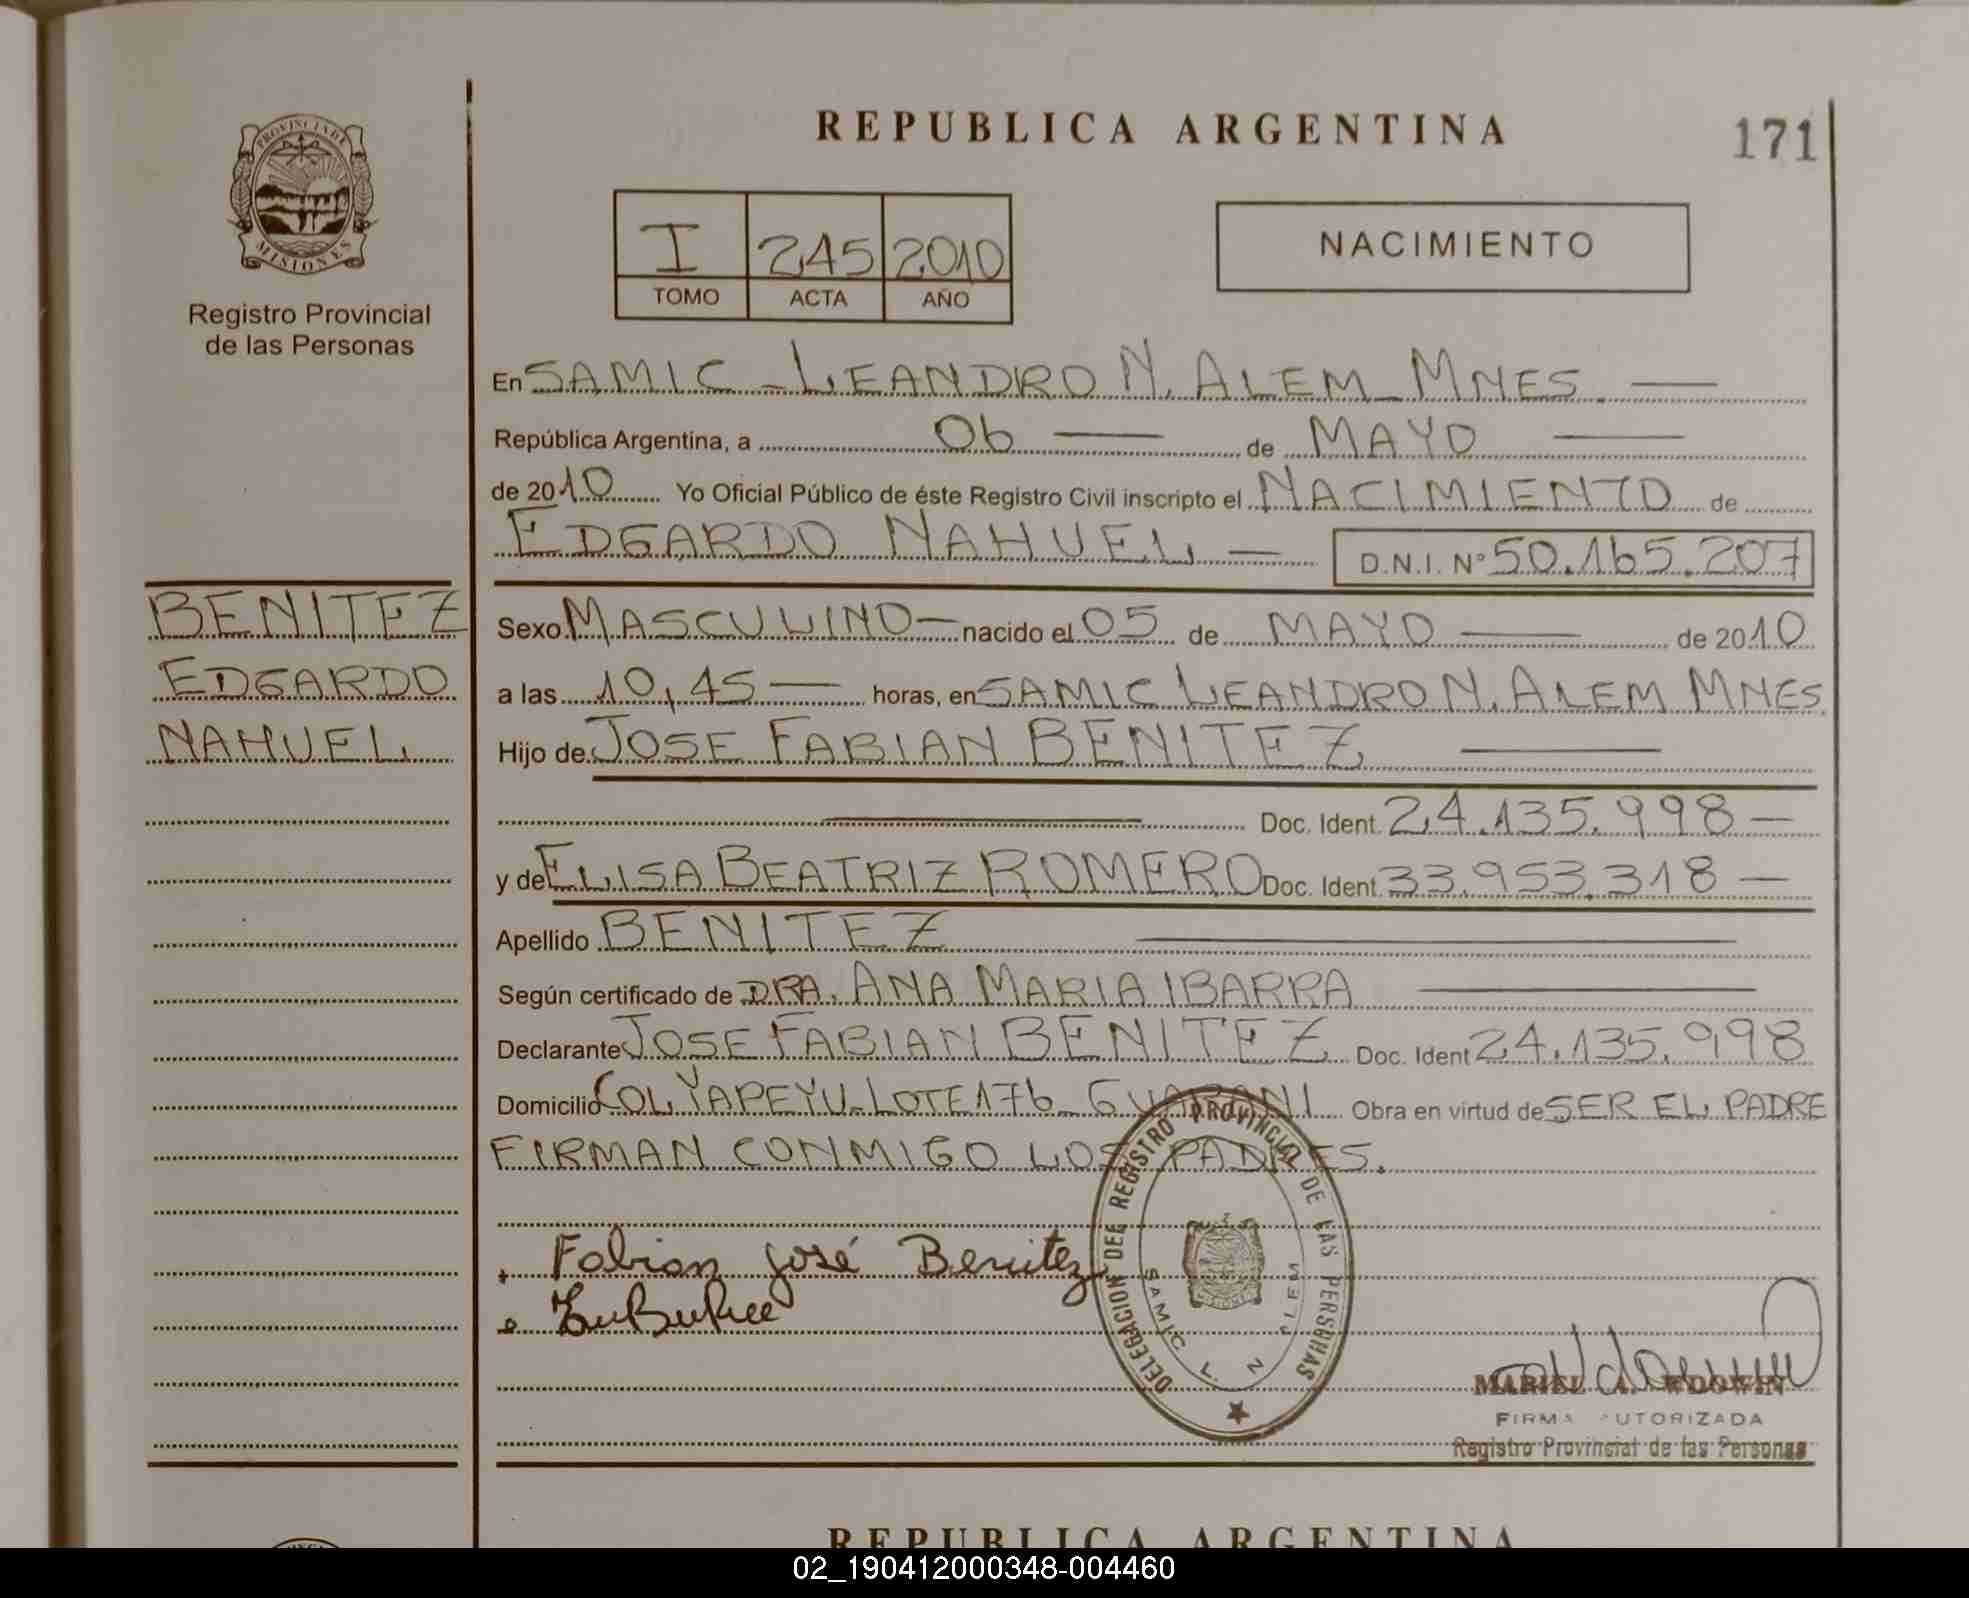 REPUBLICA ARGENTINA
171
PROVINCIA DE
MISIONES
Registro Provincial
de las Personas
I 245 2010
TOMO ACTA AÑO
NACIMIENTO
En SAMIC - LEANDRO N. ALEM - MNES.
República Argentina, a 06 de MAYO
de 2010 Yo Oficial Público de éste Registro Civil inscripto el NACIMIENTO de
EDGARDO NAHUEL D.N.I. N° 50.165.207
BENITEZ
EDGARDO
NAHUEL
Sexo MASCULINO nacido el 05 de MAYO de 2010
a las 10,45 horas, en SAMIC LEANDRO N. ALEM MNES.
Hijo de JOSE FABIAN BENITEZ
Doc. Ident. 24.135.998
y de ELISA BEATRIZ ROMERO Doc. Ident. 33.953.318
Apellido BENITEZ
Según certificado de DRA. ANA MARIA IBARRA
Declarante JOSE FABIAN BENITEZ Doc. Ident 24.135.998
Domicilio COL YAPEYU - LOTE 176 - GUARANI Obra en virtud de SER EL PADRE
FIRMAN CONMIGO LOS PADRES.
Fabian José Benitez
DELEGACION DEL REGISTRO PROVINCIAL DE LAS PERSONAS
SAMIC L. N ALEM
MARIEL A. WDOWIN
FIRMA AUTORIZADA
Registro Provincial de las Personas
REPUBLICA ARGENTINA
02_190412000348-004460